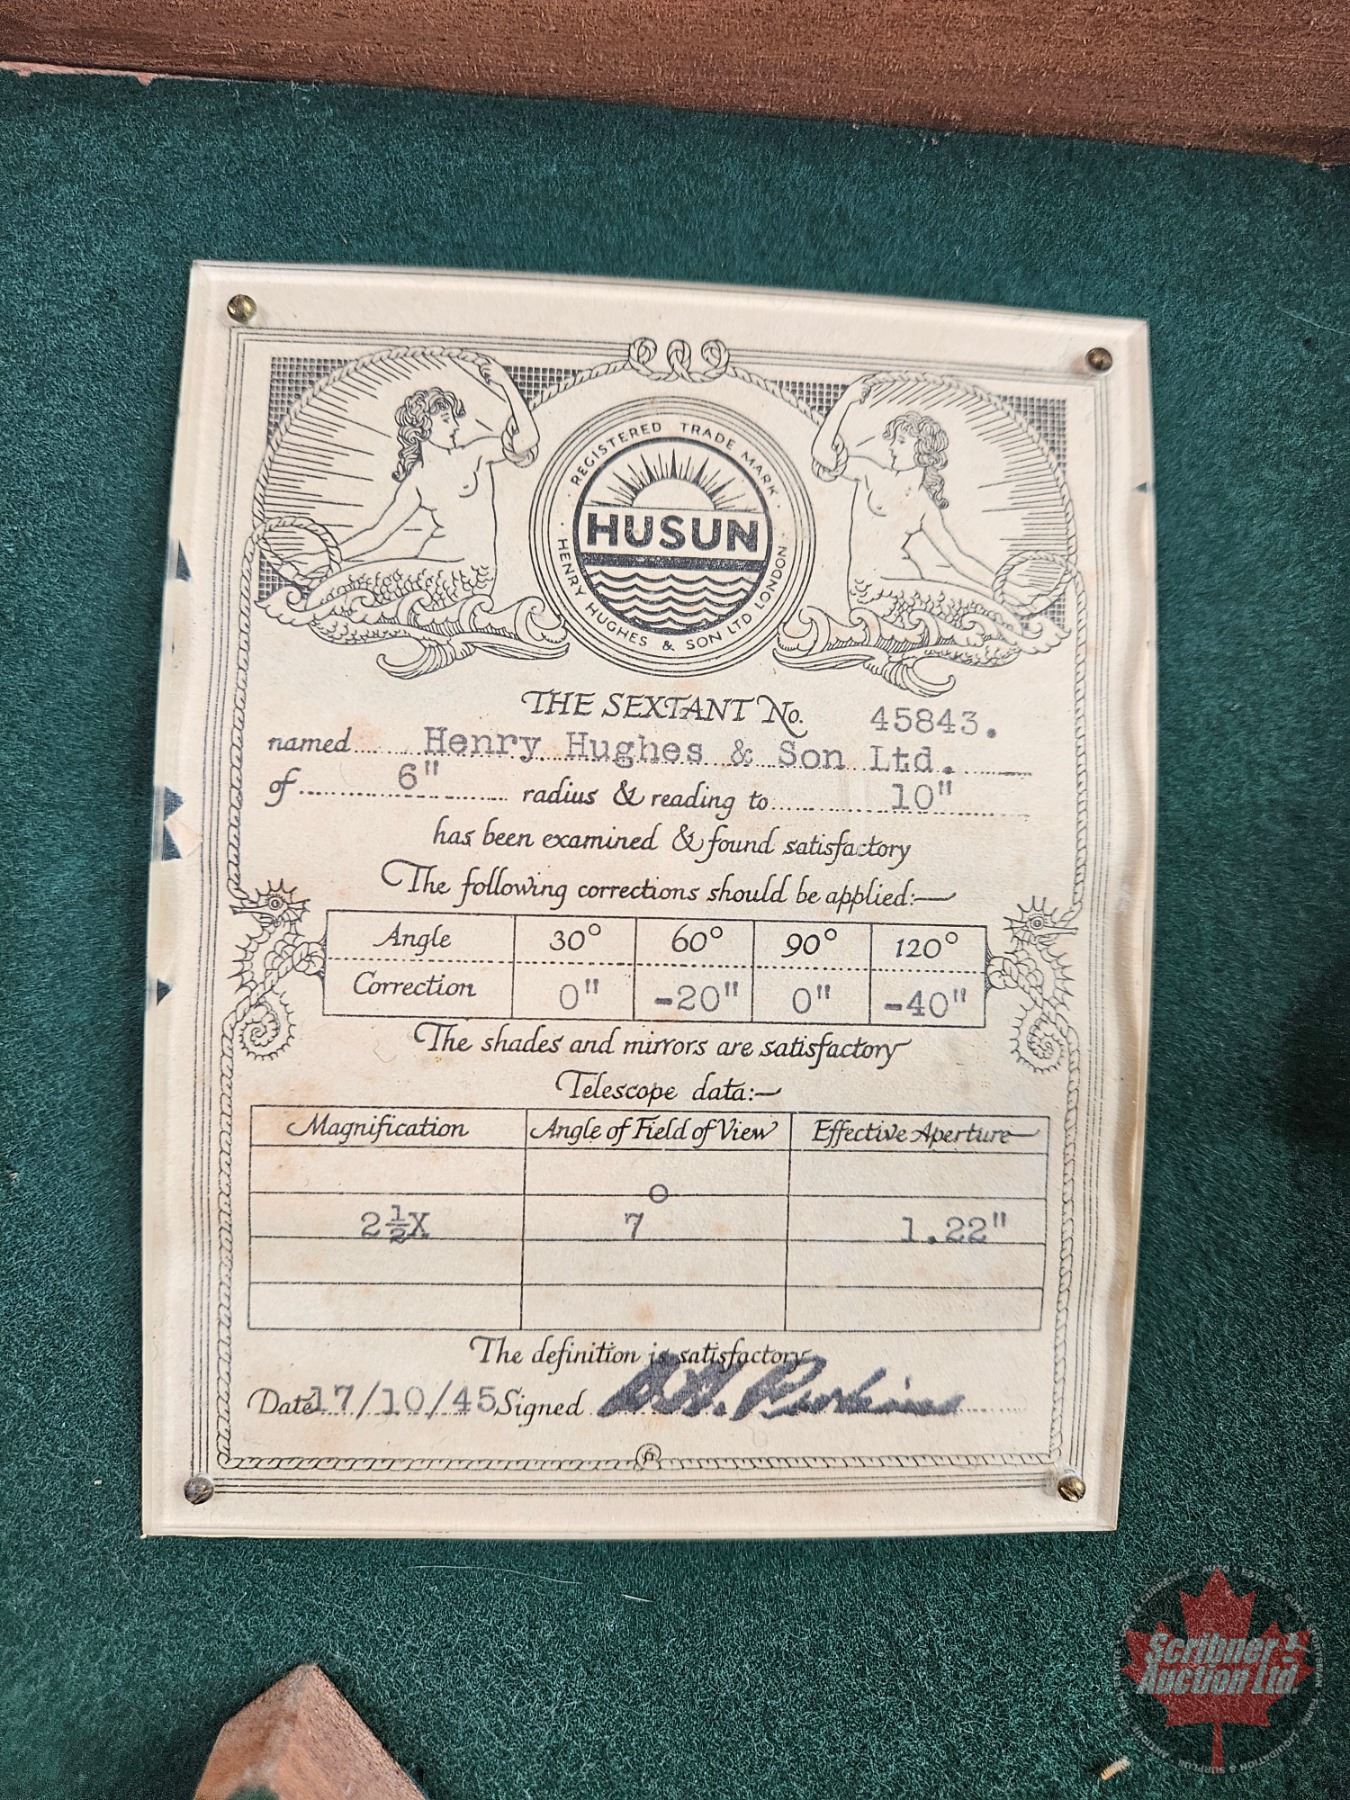 REGISTERED TRADE MARK
HUSUN
HENRY HUGHES & SON LTD LONDON
THE SEXTANT No. 45843.
named Henry Hughes & Son Ltd.
of 6" radius & reading to 10"
has been examined & found satisfactory
The following corrections should be applied:—
Angle 30° 60° 90° 120°
Correction 0" -20" 0" -40"
The shades and mirrors are satisfactory
Telescope data:—
Magnification Angle of Field of View Effective Aperture
2½X 7° 1.22"
The definition is satisfactory
Date 17/10/45 Signed
Scribner
Auction Ltd